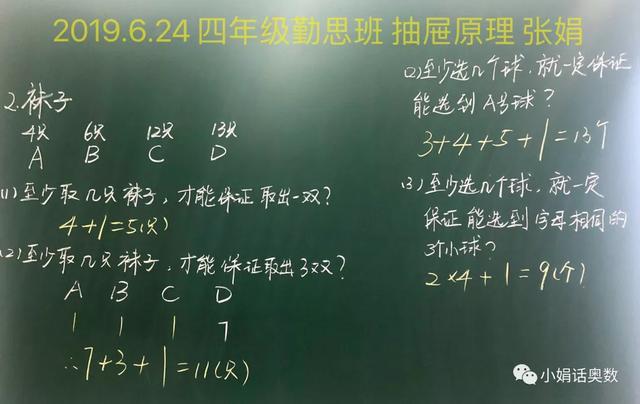 2019.6.24 四年级勤思班 抽屉原理 张娟
2.袜子
4只 6只 12只 13只
A B C D
(1)至少取几只袜子，才能保证取出一双？
4+1=5(只)
(2)至少取几只袜子，才能保证取出3双？
A B C D
1 1 1 7
∴7+3+1=11(只)
(2)至少选几个球，就一定保证
能选到A号球？
3+4+5+1=13个
(3)至少选几个球，就一定
保证能选到字母相同的
3个小球？
2×4+1=9(个)
小娟话奥数